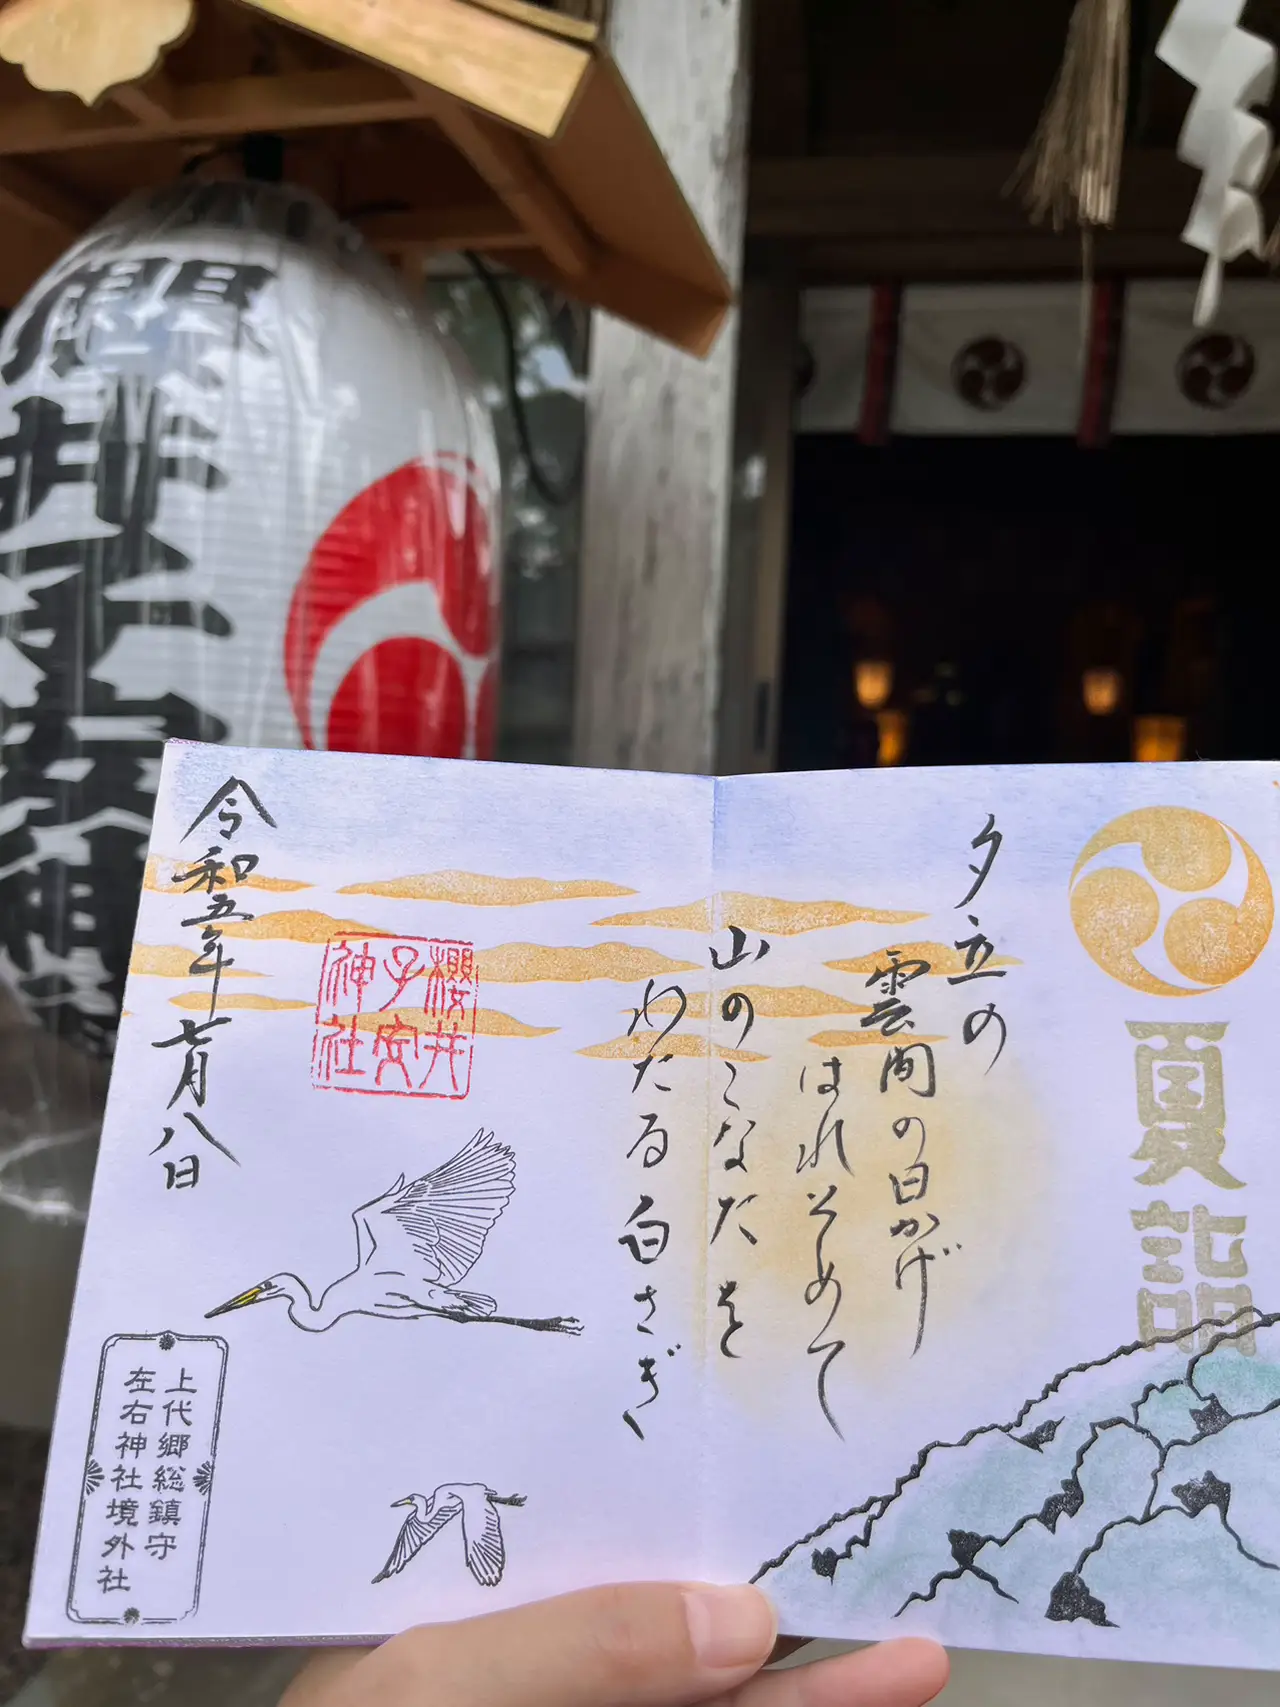 櫻井子安神社
夏詣
夕立の
雲間の日かげ
はれそめて
山のこなたを
わたる白さぎ
櫻井
子安
神社
令和五年七月八日
上代郷総鎮守
左右神社境外社